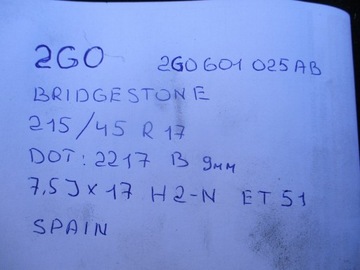 2GO 2G0601025AB
BRIDGESTONE
215/45 R 17
DOT: 2217 B 9мм
7,5J x 17 H2-N ET 51
SPAIN